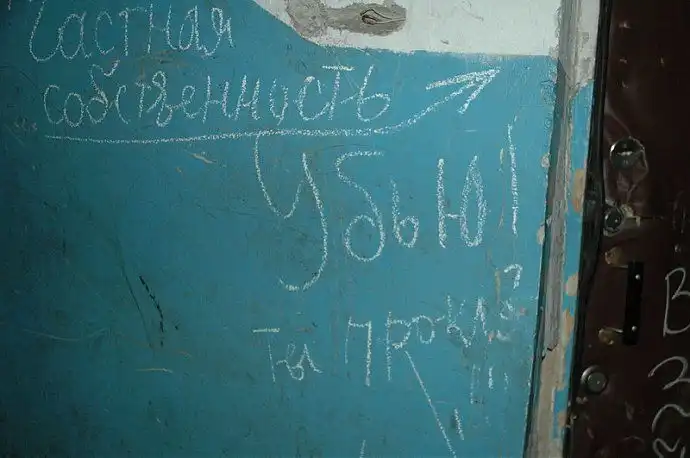 Частная
собственность
Убью!
ты
В